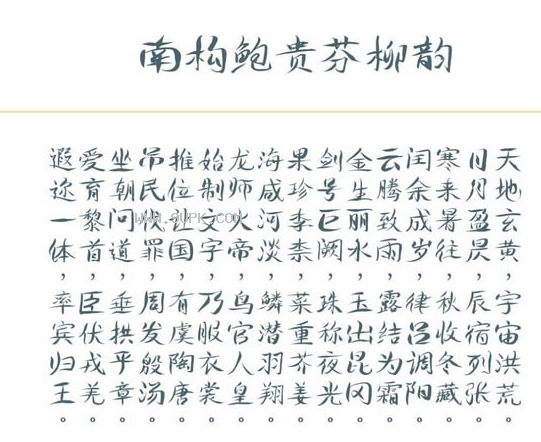 南构鲍贵芬柳韵
天地玄黄，宇宙洪荒。
日月盈昃，辰宿列张。
寒来暑往，秋收冬藏。
闰余成岁，律吕调阳。
云腾致雨，露结为霜。
金生丽水，玉出昆冈。
剑号巨阙，珠称夜光。
果珍李柰，菜重芥姜。
海咸河淡，鳞潜羽翔。
龙师火帝，鸟官人皇。
始制文字，乃服衣裳。
推位让国，有虞陶唐。
吊民伐罪，周发殷汤。
坐朝问道，垂拱平章。
爱育黎首，臣伏戎羌。
遐迩一体，率宾归王。